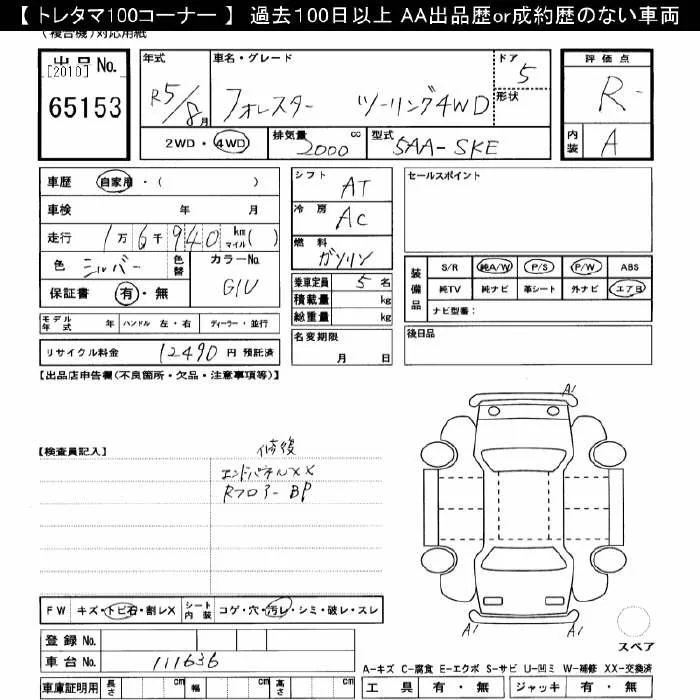 【 トレタマ100コーナー 】 過去100日以上 AA出品歴or成約歴のない車両
(複合機)対応用紙
出品 No.
[2010]
65153
年式
R5/8月
車名・グレード
フォレスター ツーリング4WD
ドア
5
形状
2WD・4WD
排気量 cc
2000
型式
5AA-SKE
評価点
R
内装
A
車歴 自家用・( )
車検 年 月
走行 1万6千940 km マイル( )
色 シルバー 色替
カラーNo. G1U
保証書 有・無
モデル年式 年 ハンドル 左・右 ディーラー・並行
リサイクル料金 12490 円 預託済
シフト AT
冷房 AC
燃料 ガソリン
乗車定員 5 名
積載量 kg
総重量 kg
名変期限 月 日
セールスポイント
装備品
S/R 純A/W P/S P/W ABS
純TV 純ナビ 革シート 外ナビ エアB
ナビ型番:
後日品
【出品店申告欄(不良箇所・欠品・注意事項等)】
【検査員記入】
修後
エンドパネルXX
Rフロアー BP
A1
A1
A1
スペア
FW キズ・トビ石・割レX シート内装 コゲ・穴・汚レ・シミ・破レ・スレ
登録 No.
車台 No. 111636
車庫証明用 長さ cm 幅 cm 高さ cm
A-キズ C-腐食 E-エクボ S-サビ U-凹ミ W-補修 XX-交換済
工具 有・無 ジャッキ 有・無